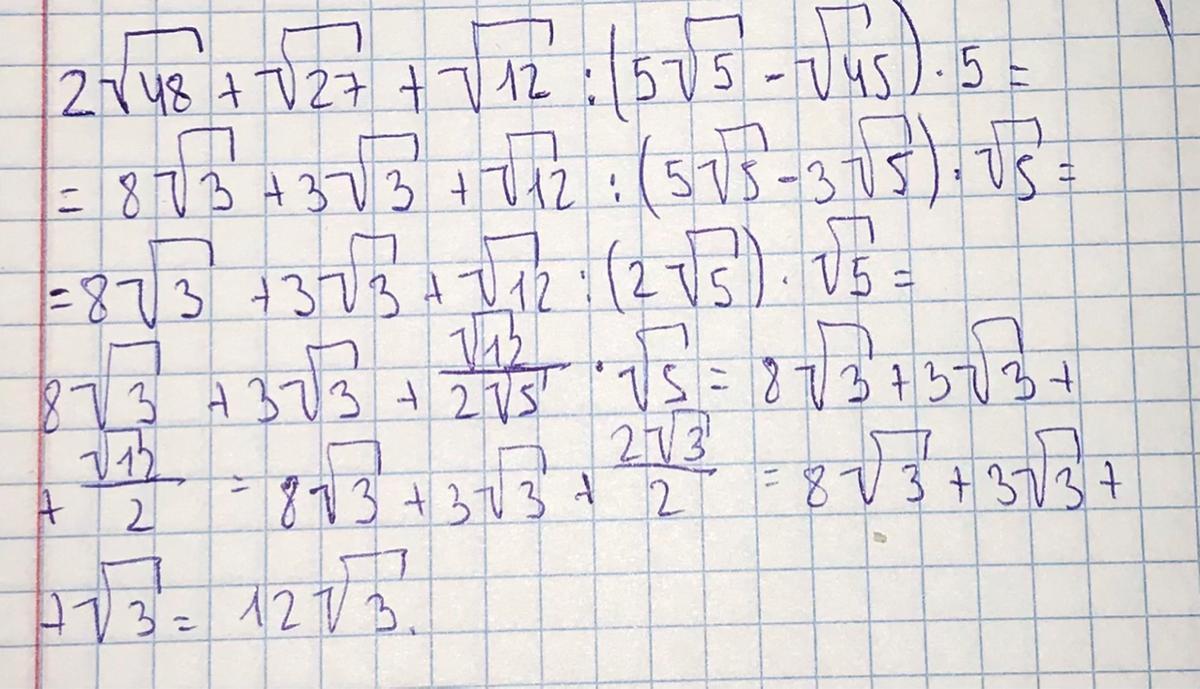 2√48 + √27 + √12 : (5√5 - √45) · 5 =
= 8√3 + 3√3 + √12 : (5√5 - 3√5) · √5 =
= 8√3 + 3√3 + √12 : (2√5) · √5 =
8√3 + 3√3 + √12/2√5 · √5 = 8√3 + 3√3 +
+ √12/2 = 8√3 + 3√3 + 2√3/2 = 8√3 + 3√3 +
+ √3 = 12√3.